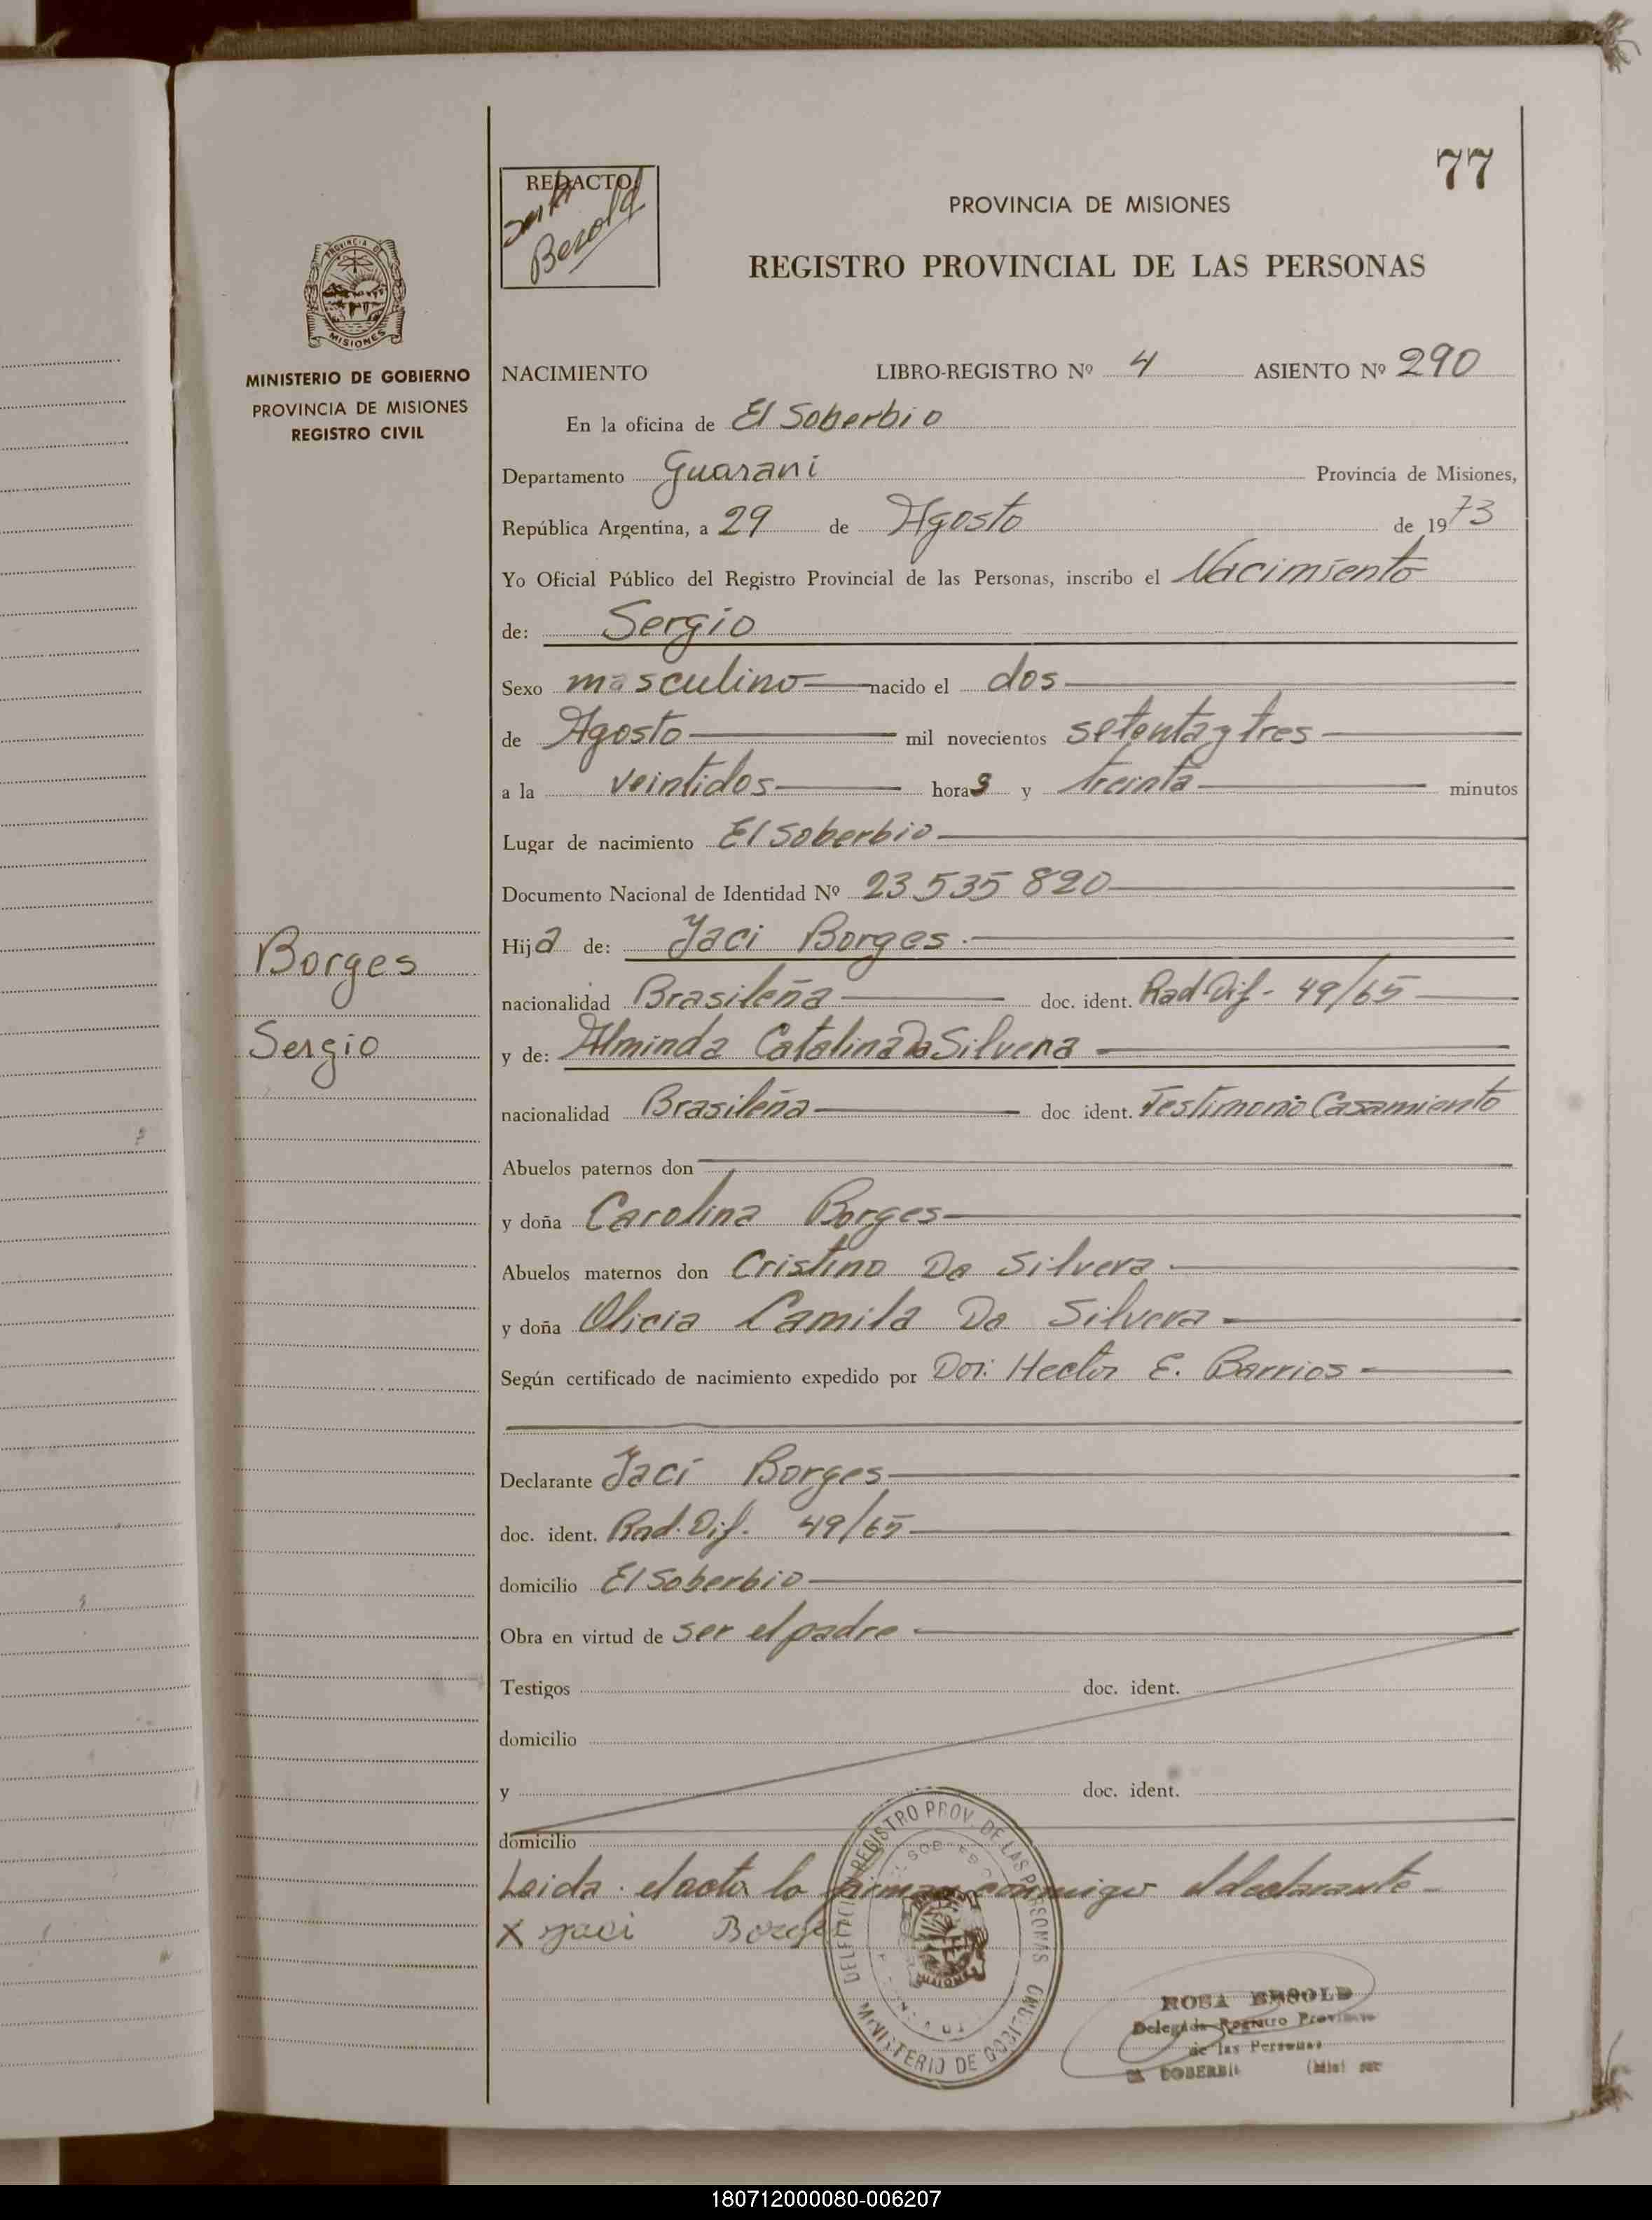 77
REDACTO
Besold
PROVINCIA DE MISIONES
REGISTRO PROVINCIAL DE LAS PERSONAS
PROVINCIA DE
MISIONES
MINISTERIO DE GOBIERNO
PROVINCIA DE MISIONES
REGISTRO CIVIL
NACIMIENTO LIBRO-REGISTRO Nº 4 ASIENTO Nº 290
En la oficina de El Soberbio
Departamento Guarani Provincia de Misiones,
República Argentina, a 29 de Agosto de 1973
Yo Oficial Público del Registro Provincial de las Personas, inscribo el Nacimiento
de: Sergio
Sexo masculino nacido el dos
de Agosto mil novecientos setenta y tres
a la veintidos horas y treinta minutos
Lugar de nacimiento El Soberbio
Documento Nacional de Identidad Nº 23.535.820
Borges
Sergio
Hija de: Jaci Borges.
nacionalidad Brasileña doc. ident. Rad. Dif. - 49/65
y de: Alminda Catalina Da Silvera
nacionalidad Brasileña doc. ident. Testimonio Casamiento
Abuelos paternos don
y doña Carolina Borges
Abuelos maternos don Cristino Da Silvera
y doña Olicia Camila Da Silvera
Según certificado de nacimiento expedido por Hector E. Barrios
Declarante Jaci Borges
doc. ident. Rad. Dif. 49/65
domicilio El Soberbio
Obra en virtud de ser el padre
Testigos doc. ident.
domicilio
y doc. ident.
domicilio
Leida el acta la firman conmigo el declarante
X Jaci Borges
REGISTRO PROV. DE LAS PERSONAS
MINISTERIO DE GOBIERNO
ROSA BESOLD
Delegada Registro Provincial
de las Personas
EL SOBERBIO
180712000080-006207